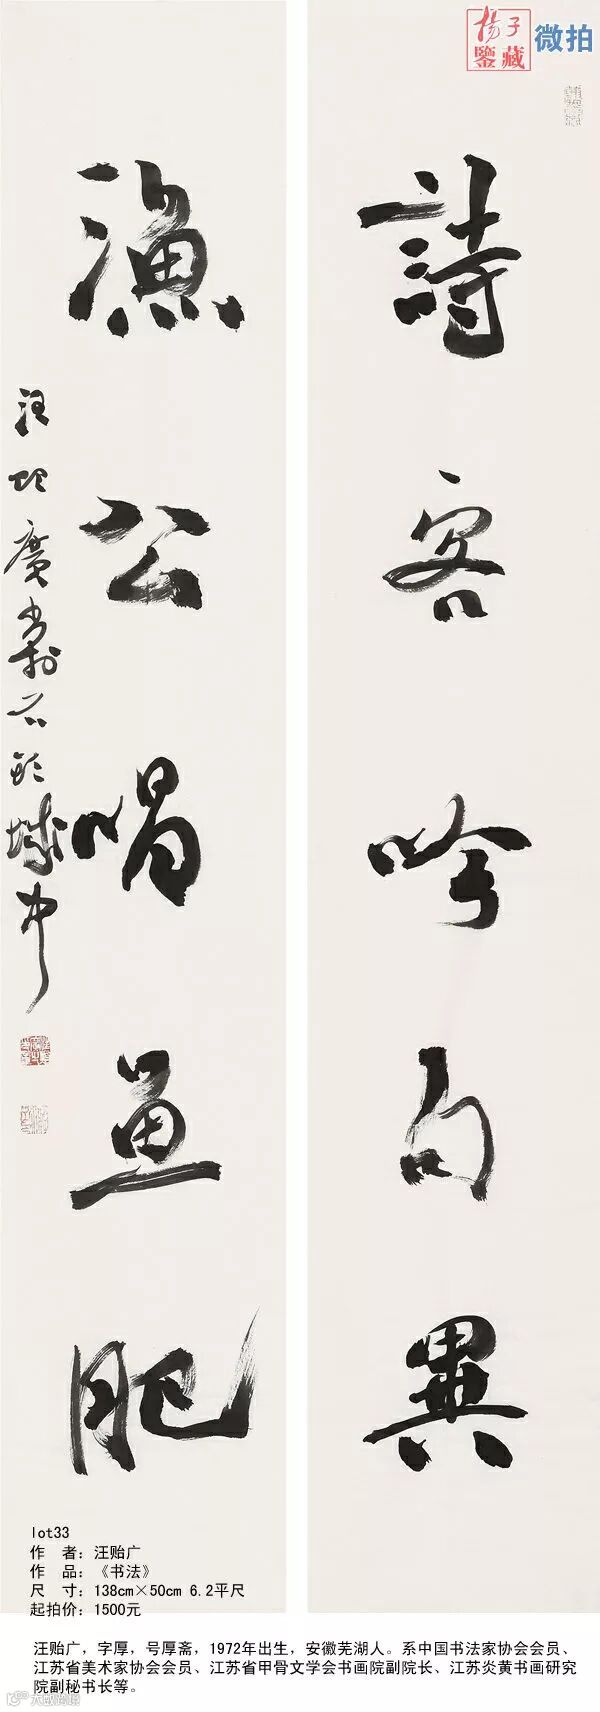 揚子
鑒藏
微拍
詩客吟句異
漁公唱魚肥
汪貽廣書于石頭城中
lot33
作 者：汪贻广
作 品：《书法》
尺 寸：138cm×50cm 6.2平尺
起拍价：1500元
汪贻广，字厚，号厚斋，1972年出生，安徽芜湖人。系中国书法家协会会员、
江苏省美术家协会会员、江苏省甲骨文学会书画院副院长、江苏炎黄书画研究
院副秘书长等。